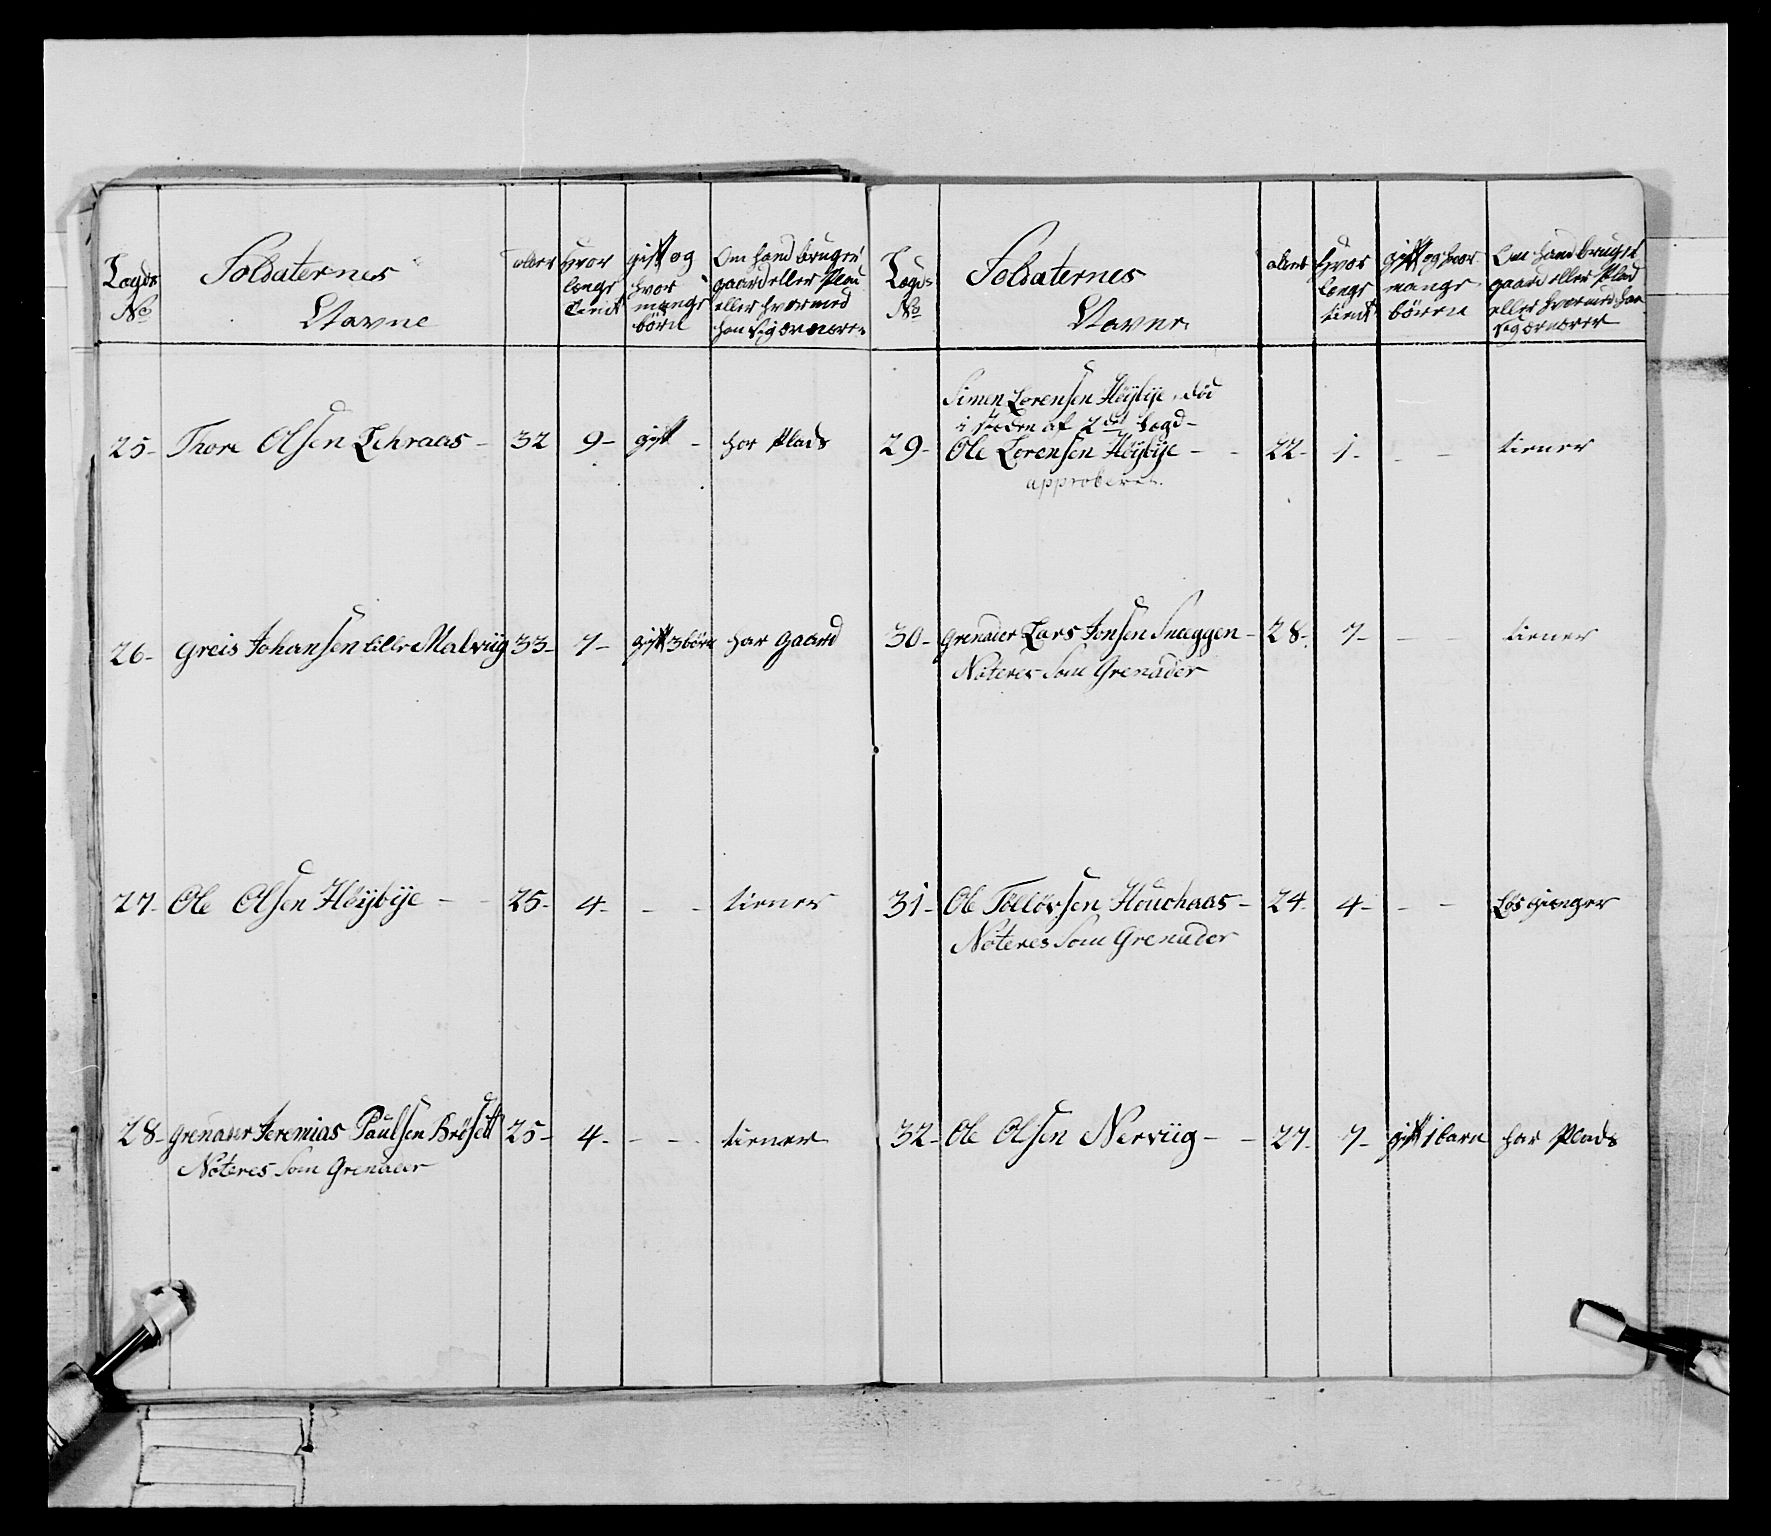 Lægds No
Soldaternes Navne
alder
hvor længe tient
gift og hvor mange börn
Om hand bruger gaard eller Plads eller hvormed han sig ernærer
25- Thore Olsen Lehraas - 32 9- gift - har Plads
26- Greis Johansen lille Malviig 33- 7- gift 3 börn har gaard
27- Ole Olsen Höybye - - 25- 4- - - tiener
28- grenader Jeremias Paulsen Brösett 25- 4- - - tiener
Noteres Som Grenader
Lægds No
Soldaternes Navne
alder
hvor længe tient
gift og hvor mange börn
Om hand bruger gaard eller Plad eller hvormed han sig ernærer
Simen Lorensen Höybye, död
i steden af 2det Lægd-
29- Ole Lorensen Höybye - - 22- 1- - - tiener
approberet
30- grenader Lars Jonsen Snaggen - 28- 7- - - tiener
Noteres Som Grenader
31- Ole Tollövsen Houchaas - 24- 4- - - Lösgienger
Noteres Som Grenader
32- Ole Olsen Nerviig - - 27- 7- gift 1 barn har Plads